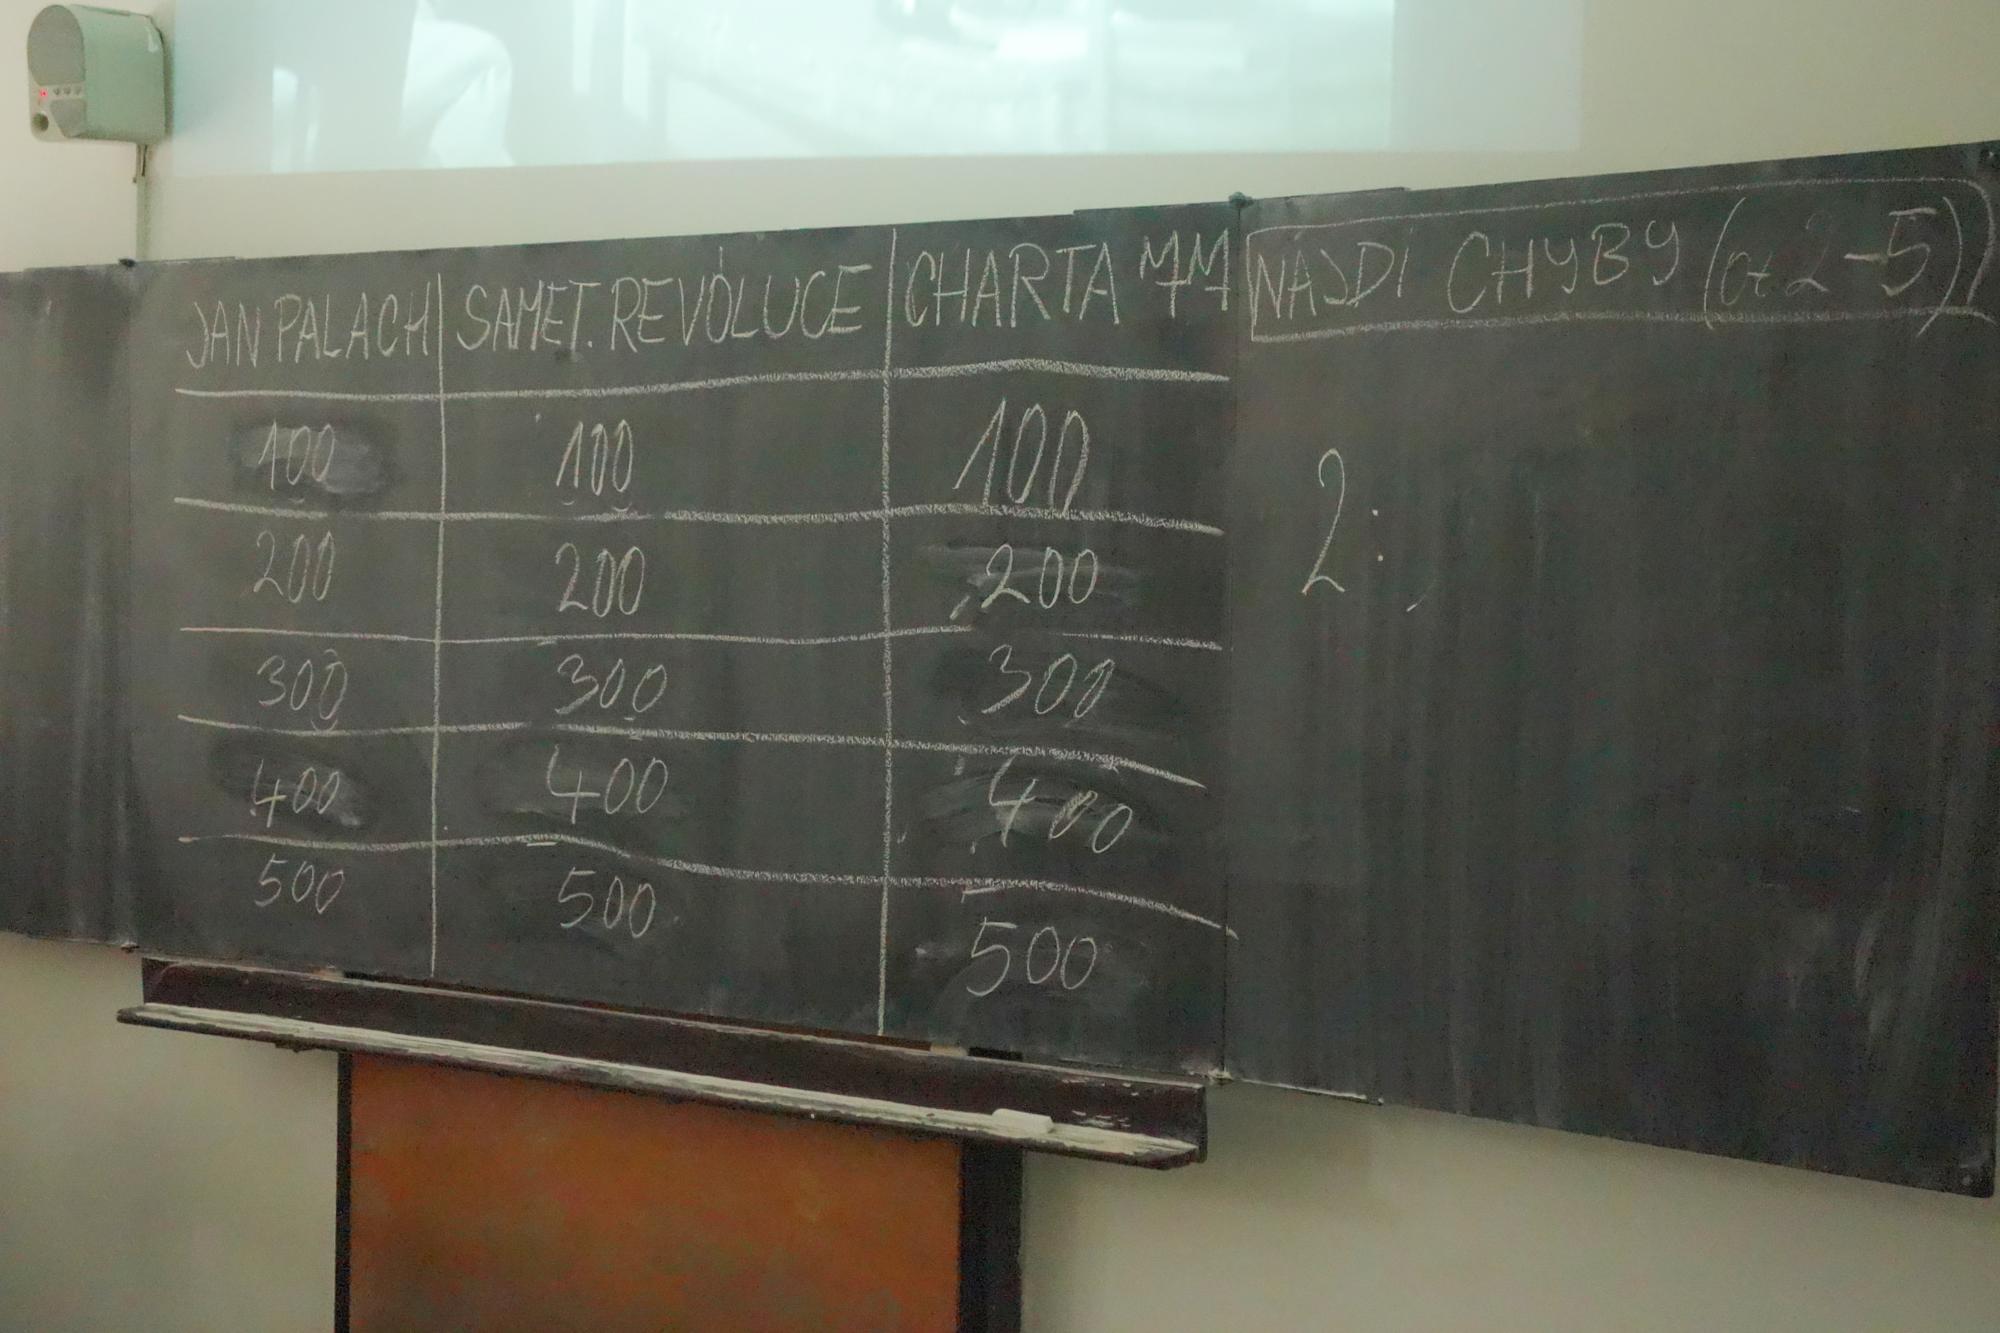 JAN PALACH SAMET. REVOLUCE CHARTA 77
100 100 100
200 200 200
300 300 300
400 400 400
500 500 500
NAJDI CHYBY (ot. 2-5)
2: